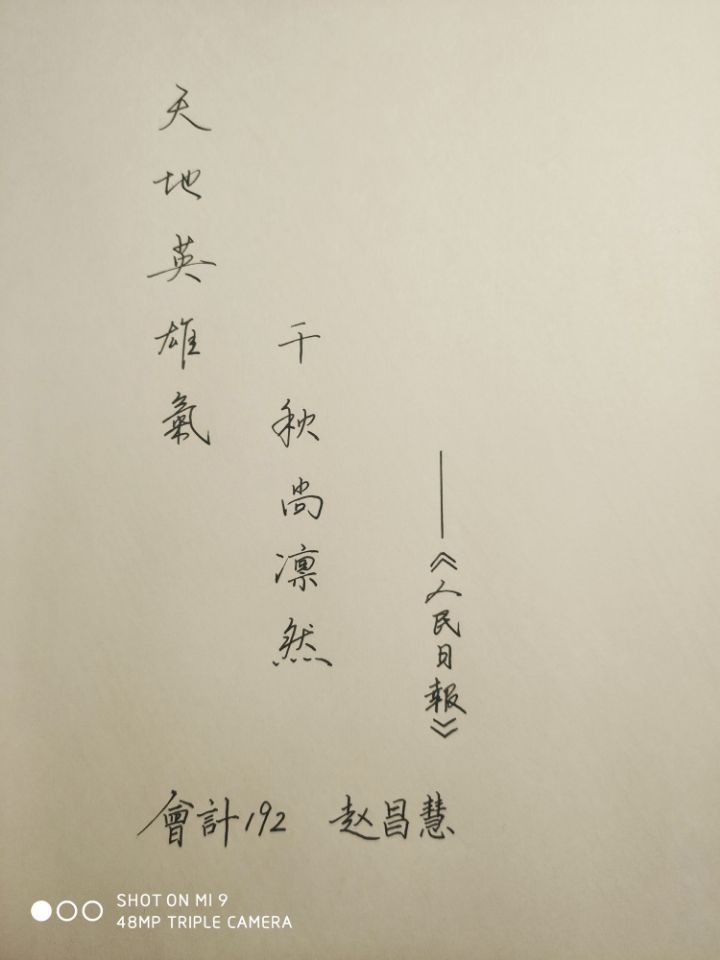 天地英雄氣
千秋尚凛然
——《人民日報》
會計192 赵昌慧
SHOT ON MI 9
48MP TRIPLE CAMERA